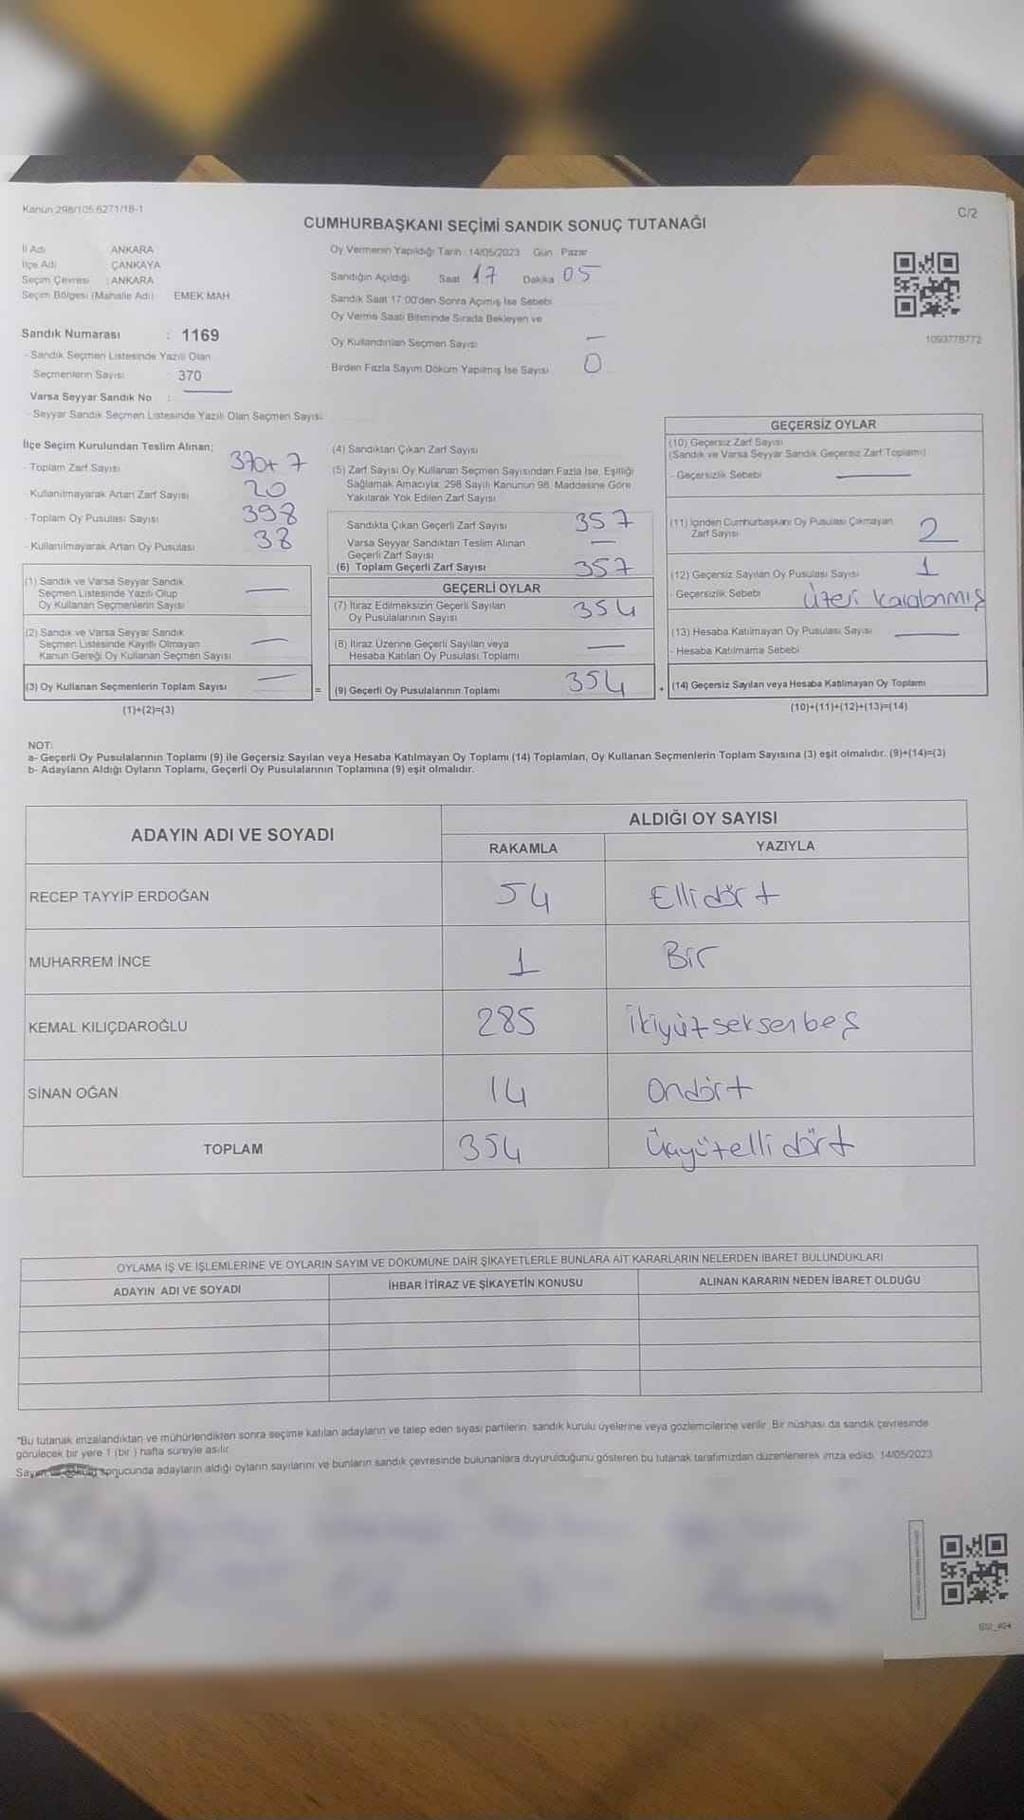 Kanun:298/105 6271/18-1
C/2
CUMHURBAŞKANI SEÇİMİ SANDIK SONUÇ TUTANAĞI
İl Adı : ANKARA
İlçe Adı : ÇANKAYA
Seçim Çevresi : ANKARA
Seçim Bölgesi (Mahalle Adı) EMEK MAH
Sandık Numarası : 1169
- Sandık Seçmen Listesinde Yazılı Olan
Seçmenlerin Sayısı 370
Varsa Seyyar Sandık No :
- Seyyar Sandık Seçmen Listesinde Yazılı Olan Seçmen Sayısı
Oy Vermenin Yapıldığı Tarih : 14/05/2023 Gün : Pazar
Sandığın Açıldığı Saat 17 Dakika 05
Sandık Saat 17:00'den Sonra Açılmış İse Sebebi
Oy Verme Saati Bitiminde Sırada Bekleyen ve
Oy Kullandırılan Seçmen Sayısı —
Birden Fazla Sayım Döküm Yapılmış İse Sayısı 0
1093778772
İlçe Seçim Kurulundan Teslim Alınan;
- Toplam Zarf Sayısı 370+7
- Kullanılmayarak Artan Zarf Sayısı 20
- Toplam Oy Pusulası Sayısı 398
- Kullanılmayarak Artan Oy Pusulası 38
(1) Sandık ve Varsa Seyyar Sandık
Seçmen Listesinde Yazılı Olup
Oy Kullanan Seçmenlerin Sayısı —
(2) Sandık ve Varsa Seyyar Sandık
Seçmen Listesinde Kayıtlı Olmayan
Kanun Gereği Oy Kullanan Seçmen Sayısı —
(3) Oy Kullanan Seçmenlerin Toplam Sayısı —
(1)+(2)=(3)
(4) Sandıktan Çıkan Zarf Sayısı
(5) Zarf Sayısı Oy Kullanan Seçmen Sayısından Fazla İse, Eşitliği
Sağlamak Amacıyla, 298 Sayılı Kanunun 98. Maddesine Göre
Yakılarak Yok Edilen Zarf Sayısı
Sandıkta Çıkan Geçerli Zarf Sayısı 357
Varsa Seyyar Sandıktan Teslim Alınan
Geçerli Zarf Sayısı —
(6) Toplam Geçerli Zarf Sayısı 357
GEÇERLİ OYLAR
(7) İtiraz Edilmeksizin Geçerli Sayılan
Oy Pusulalarının Sayısı 354
(8) İtiraz Üzerine Geçerli Sayılan veya
Hesaba Katılan Oy Pusulası Toplamı —
= (9) Geçerli Oy Pusulalarının Toplamı 354 +
GEÇERSİZ OYLAR
(10) Geçersiz Zarf Sayısı
(Sandık ve Varsa Seyyar Sandık Geçersiz Zarf Toplamı)
- Geçersizlik Sebebi —
(11) İçinden Cumhurbaşkanı Oy Pusulası Çıkmayan
Zarf Sayısı 2
(12) Geçersiz Sayılan Oy Pusulası Sayısı 1
- Geçersizlik Sebebi üzeri karalanmış
(13) Hesaba Katılmayan Oy Pusulası Sayısı —
- Hesaba Katılmama Sebebi
(14) Geçersiz Sayılan veya Hesaba Katılmayan Oy Toplamı
(10)+(11)+(12)+(13)=(14)
NOT:
a- Geçerli Oy Pusulalarının Toplamı (9) ile Geçersiz Sayılan veya Hesaba Katılmayan Oy Toplamı (14) Toplamları, Oy Kullanan Seçmenlerin Toplam Sayısına (3) eşit olmalıdır. (9)+(14)=(3)
b- Adayların Aldığı Oyların Toplamı, Geçerli Oy Pusulalarının Toplamına (9) eşit olmalıdır.
ADAYIN ADI VE SOYADI
ALDIĞI OY SAYISI
RAKAMLA YAZIYLA
RECEP TAYYİP ERDOĞAN 54 Ellidört
MUHARREM İNCE 1 Bir
KEMAL KILIÇDAROĞLU 285 ikiyüzseksenbeş
SİNAN OĞAN 14 Ondört
TOPLAM 354 Üçyüzellidört
OYLAMA İŞ VE İŞLEMLERİNE VE OYLARIN SAYIM VE DÖKÜMÜNE DAİR ŞİKAYETLERLE BUNLARA AİT KARARLARIN NELERDEN İBARET BULUNDUKLARI
ADAYIN ADI VE SOYADI İHBAR İTİRAZ VE ŞİKAYETİN KONUSU ALINAN KARARIN NEDEN İBARET OLDUĞU
"Bu tutanak imzalandıktan ve mühürlendikten sonra seçime katılan adayların ve talep eden siyasi partilerin, sandık kurulu üyelerine veya gözlemcilerine verilir. Bir nüshası da sandık çevresinde
görülecek bir yere 1 (bir ) hafta süreyle asılır.
Sayım ve döküm sonucunda adayların aldığı oyların sayılarını ve bunların sandık çevresinde bulunanlara duyurulduğunu gösteren bu tutanak tarafımızdan düzenlenerek imza edildi. 14/05/2023